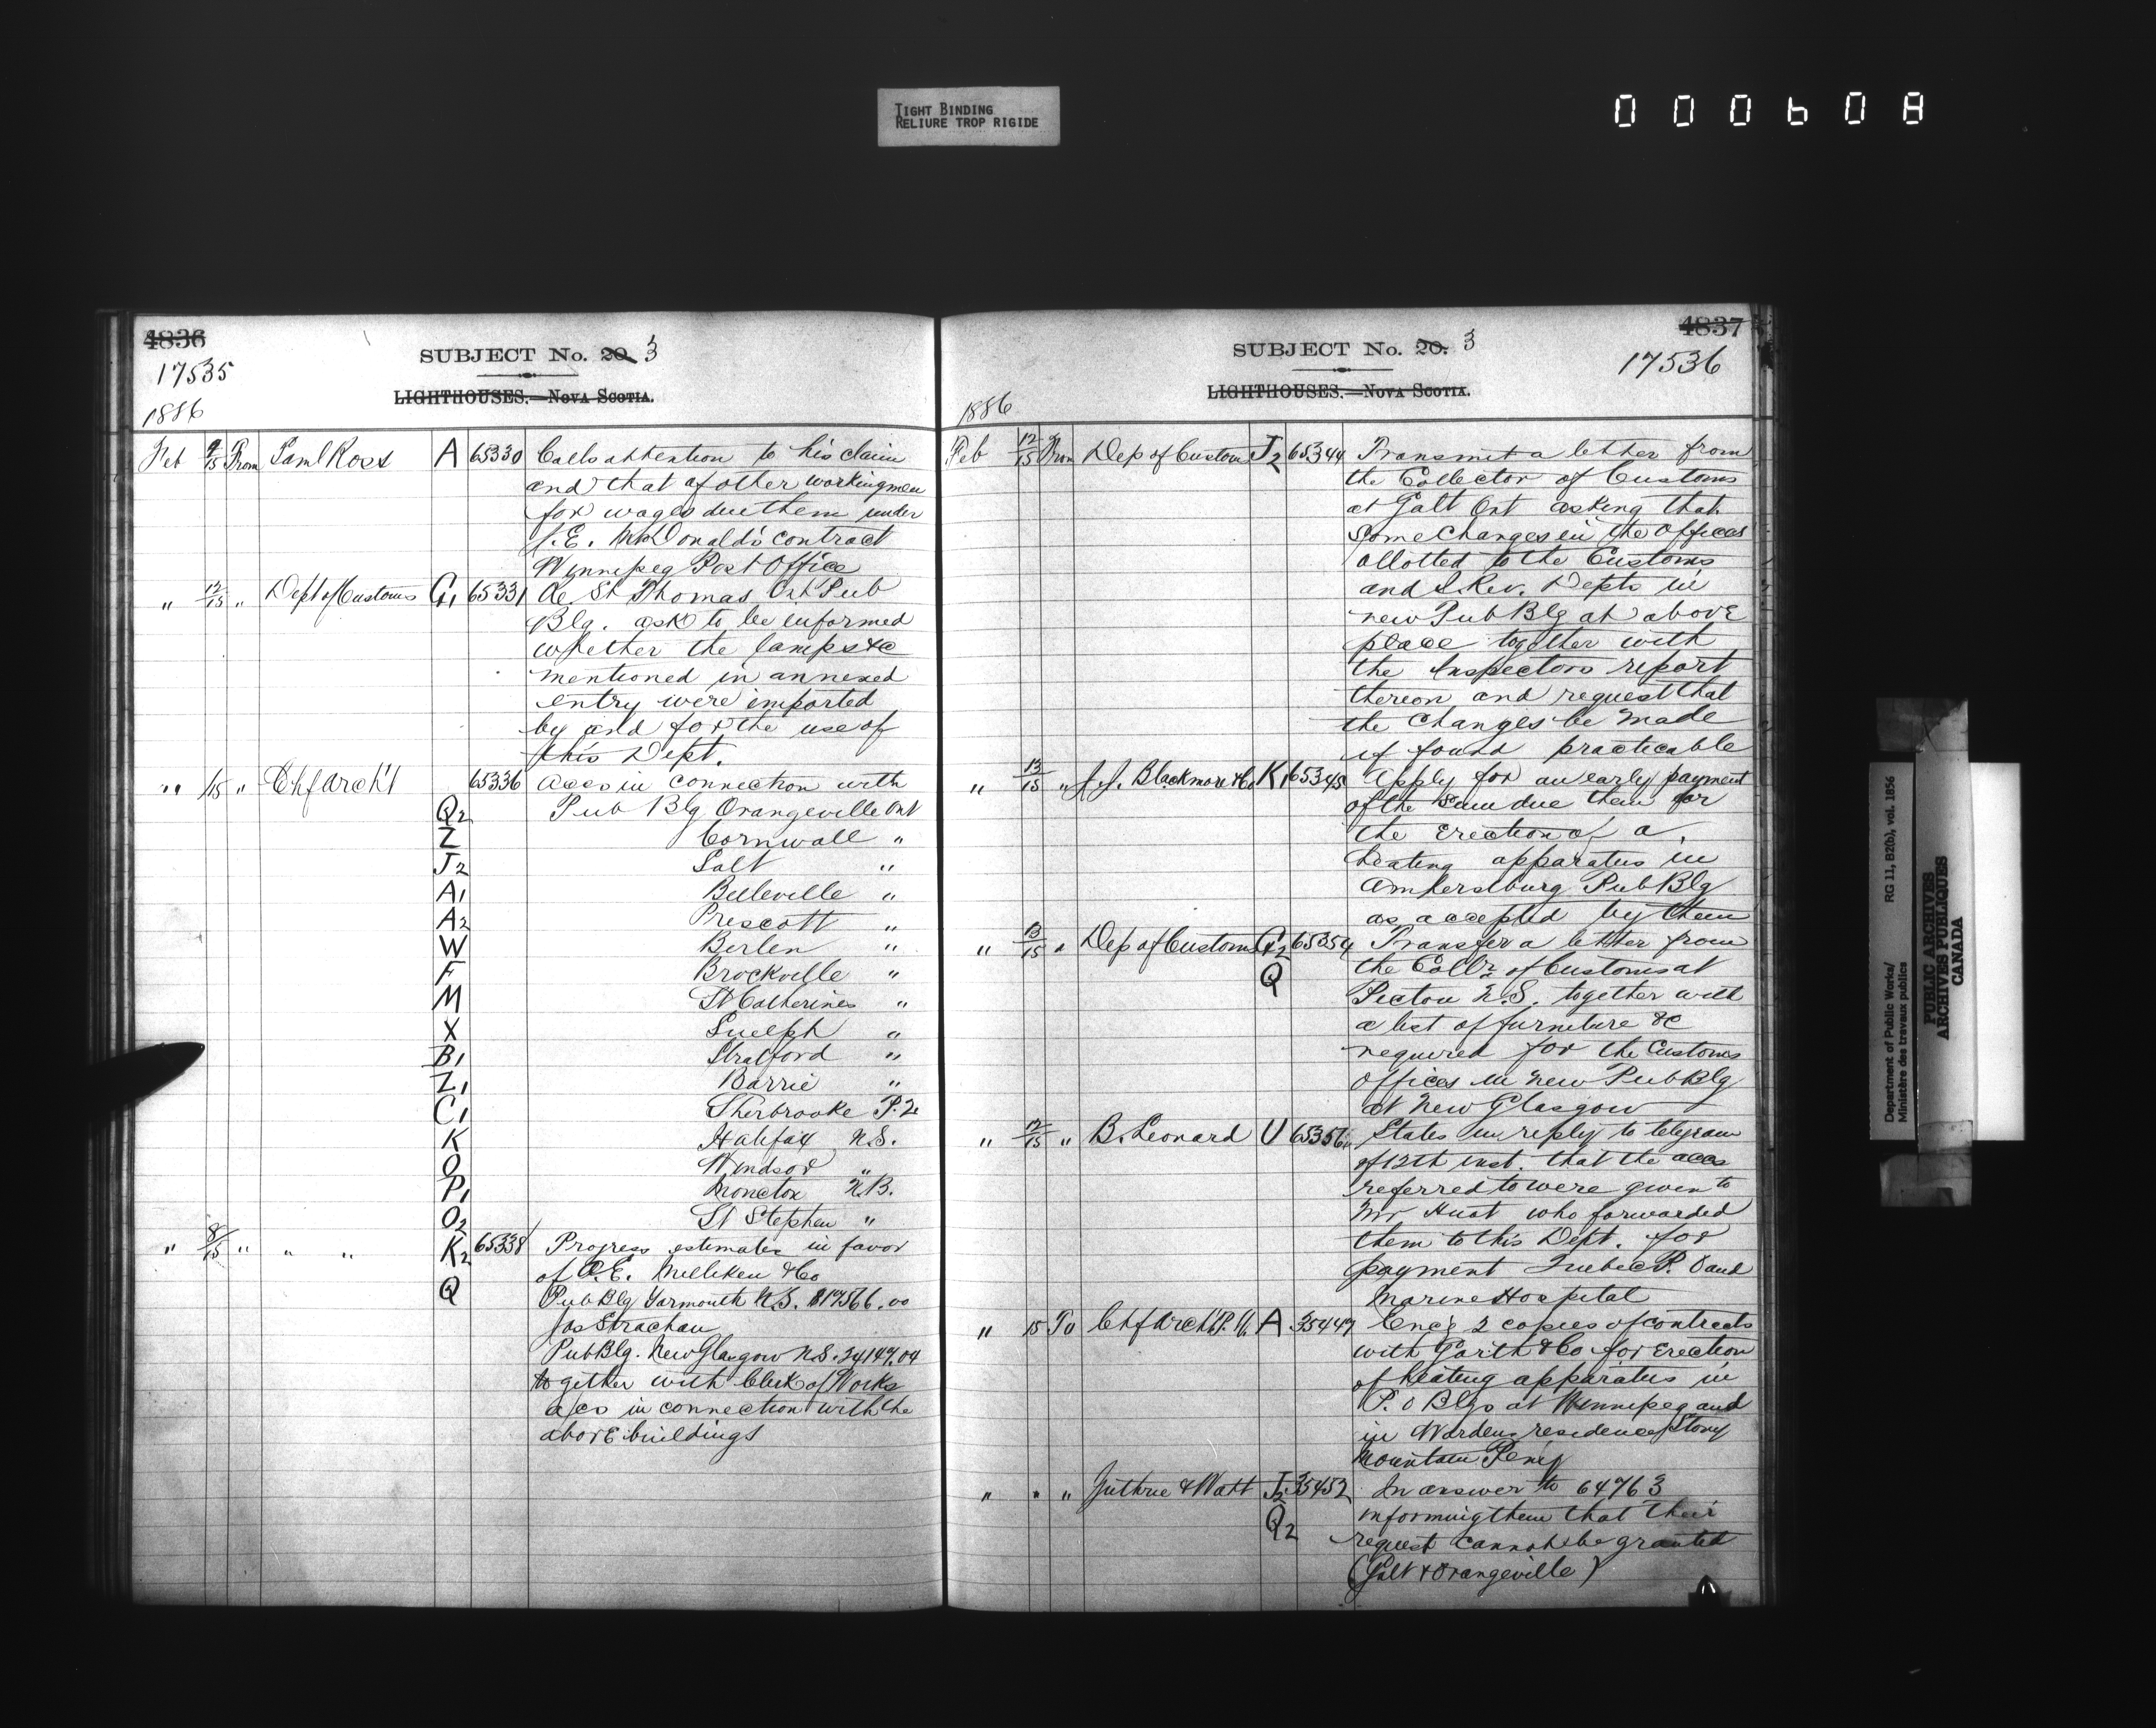 TIGHT BINDING
RELIURE TROP RIGIDE
000608
4836
17535
SUBJECT No. 20 3
LIGHTHOUSES.—NOVA SCOTIA.
1886
Feb 9/15 From Saml Ross A 65330 Calls attention to his claim
and that of other workingmen
for wages due them under
J.E. McDonald's contract
Winnipeg Post Office
" 12/15 " Dept of Customs G1 65331 Re St Thomas Ont Pub
Blg. ask to be informed
whether the lamps &c
mentioned in annexed
entry were imported
by and for the use of
this Dept.
" /15 " Chf Arch't 65336 Accs in connection with
Q2 Pub Blg Orangeville Ont
Z Cornwall "
J2 Galt "
A1 Belleville "
A2 Prescott "
W Berlin "
F Brockville "
M St Catherines "
X Guelph "
B1 Stratford "
Z1 Barrie "
C1 Sherbrooke P.Q
K Halifax N.S.
O Windsor "
P1 Moncton N.B.
O2 St Stephen "
" 8/15 " " " K2 65338 Progress estimates in favor
of E. Milliken & Co
Q Pub Blg Yarmouth N.S. $17566.00
Jas Strachan
Pub Blg. New Glasgow N.S. 24147.04
together with Clerk of Works
accs in connection with the
above buildings
4837
17536
SUBJECT No. 20. 3
LIGHTHOUSES.—NOVA SCOTIA.
1886
Feb 12/15 From Dep of Custom J2 65344 Transmit a letter from
the Collector of Customs
at Galt Ont asking that
some changes in the Offices
allotted to the Customs
and I. Rev. Depts in
new Pub Blg at above
place together with
the Inspectors report
thereon and request that
the changes be made
if found practicable
" 13/15 " J.J. Blackmore & Co K1 65345 Apply for an early payment
of the sum due them for
the erection of a
heating apparatus in
Amherstburg Pub Blg
as accepted by them
" 13/15 " Dep of Custom G2 65354 Transfer a letter from
Q the Collr of Customs at
Pictou N.S. together with
a list of furniture &c
required for the Customs
offices in new Pub Blg
at New Glasgow
" 12/15 " B. Leonard U 65356 States in reply to telegram
of 12th inst. that the accs
referred to were given to
Mr Huot who forwarded
them to this Dept. for
payment Quebec P. O and
Marine Hospital
" 15 To Chf Arch't P.W. A 35447 Enc'g 2 copies of contracts
with Garth & Co for Erection
of heating apparatus in
P. O Blgs at Winnipeg and
in Wardens residence Stony
Mountain Peny
" " " Guthrie & Watt J2 35452 In answer to 64763
Q2 informing them that their
request cannot be granted
(Galt & Orangeville)
Department of Public Works/ RG 11, B2(b), vol. 1856
Ministère des travaux publics
PUBLIC ARCHIVES
ARCHIVES PUBLIQUES
CANADA